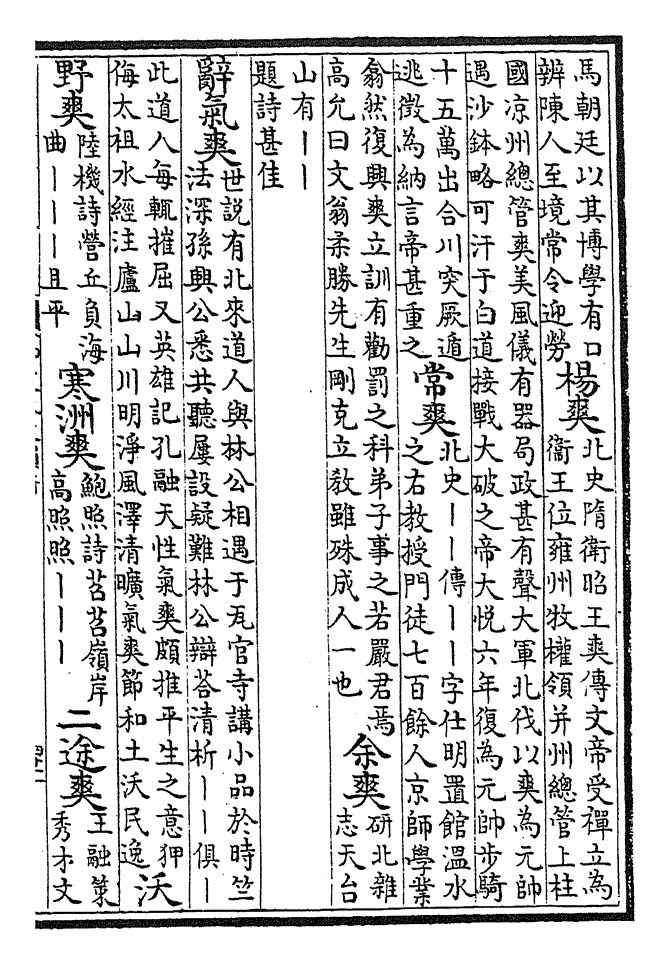 馬朝廷以其博學有口
辨陳人至境常令迎勞
楊爽
北史隋衛昭王爽傳文帝受禪立為
衞王位雍州牧權領并州總管上柱
國凉州總管爽美風儀有器局政甚有聲大軍北伐以爽為元帥
遇沙鉢略可汗于白道接戰大破之帝大悦六年復為元帥步騎
十五萬出合川突厥遁
逃徵為納言帝甚重之
常爽
北史｜｜傳｜｜字仕明置館溫水
之右教授門徒七百餘人京師學業
翕然復興爽立訓有勸罰之科弟子事之若嚴君焉
高允曰文翁柔勝先生剛克立敎雖殊成人一也
余爽
研北雜
志天台
山有｜｜
題詩甚佳
辭氣爽
世説有北來道人與林公相遇于瓦官寺講小品於時竺
法深孫興公悉共聽屢設疑難林公辯荅清析｜｜俱｜
此道人每輒摧屈又英雄記孔融天性氣爽頗推平生之意狎
侮太祖水經注廬山山川明淨風澤清曠氣爽節和土沃民逸
沃野爽
陸機詩營丘負海
曲｜｜｜且平
寒洲爽
鮑照詩苕苕嶺岸
高照照｜｜｜
二途爽
王融策
秀才文